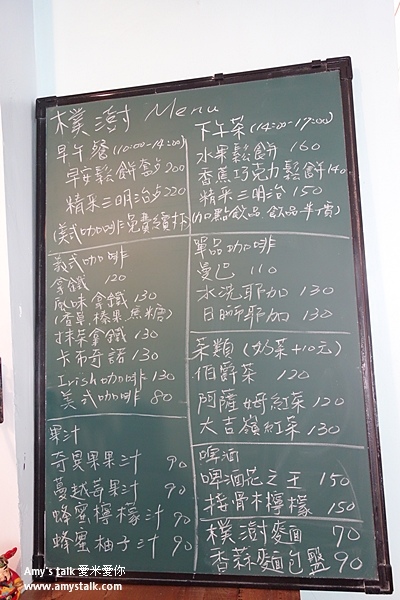 樸澍 Menu
早午餐(10:00-14:00)
早安鬆餅套餐200
精采三明治餐220
(美式咖啡免費續杯)
義式咖啡
拿鐵 120
風味拿鐵 130
(香草、榛果、焦糖)
抹茶拿鐵 130
卡布奇諾 130
Irish咖啡 130
美式咖啡 80
果汁
奇異果果汁 90
蔓越莓果汁 90
蜂蜜檸檬汁 90
蜂蜜柚子汁 90
下午茶(14:00-17:00)
水果鬆餅 160
香蕉巧克力鬆餅140
精采三明治 150
(加點飲品 飲品半價)
單品咖啡
曼巴 110
水洗耶加 130
日曬耶加 130
茶類(奶茶+10元)
伯爵茶 120
阿薩姆紅茶 120
大吉嶺紅茶 130
啤酒
啤酒花之王 150
接骨木檸檬 150
樸澍麵 70
香蒜麵包盤 90
Amy's talk 愛米愛你
www.amystalk.com